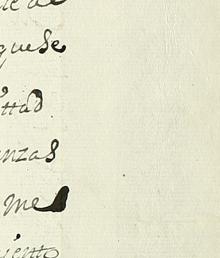 que de
quese
ttad
nzas
me
iento